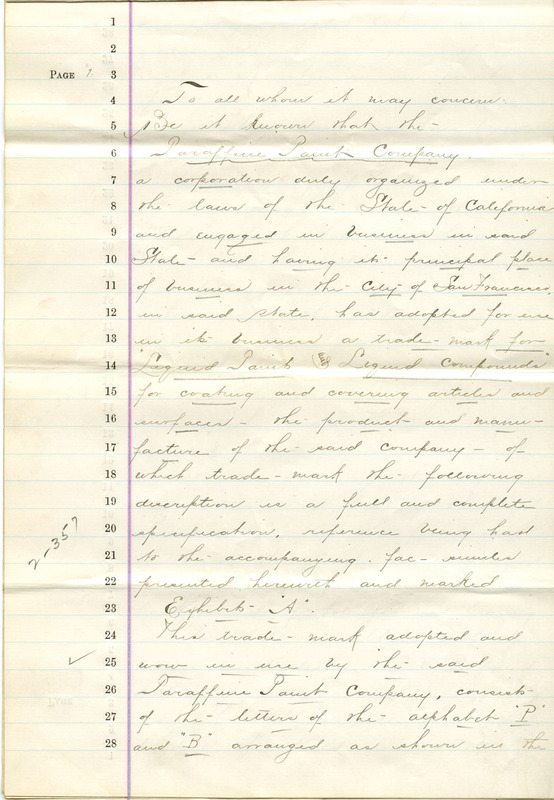 1
2
PAGE 1. 3
4 To all whom it may concern:
5 Be it known that the
6 Paraffine Paint Company.
7 a corporation duly organized under
8 the laws of the State of California
9 and engaged in business in said
10 State and having its principal place
11 of business in the City of San Francisco,
12 in said state, has adopted for use
13 in its business a trade-mark for
14 Liquid Paint and Liquid Compounds
15 for coating and covering articles and
16 surfaces - the product and manu-
17 facture of the said company - of
18 which trade-mark the following
19 discription is a full and complete
2-357 20 specification, reference being had
21 to the accompanying fac-similes
22 presented herewith and marked
23 Exhibits "A".
24 This trade-mark adopted and
✓ 25 now in use by the said
26 Paraffine Paint Company, consists
27 of the letters of the alphabet "P"
28 and "B" arranged as shown in the